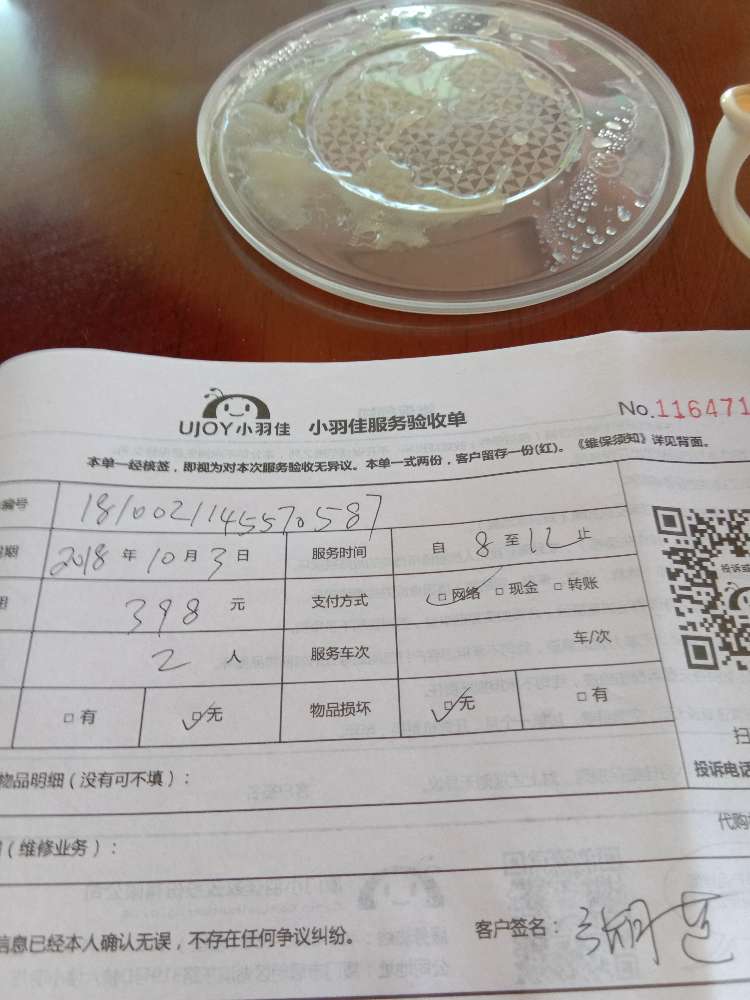 UJOY小羽佳 小羽佳服务验收单 No.116471
本单一经核签，即视为对本次服务验收无异议。本单一式两份，客户留存一份(红)。《维保须知》详见背面。
编号 1810021145570587
期 2018 年 10 月 3 日 服务时间 自 8 至 12 止
398 元 支付方式 □网络 □现金 □转账
2 人 服务车次 车/次
□有 □无 物品损坏 □无 □有
投诉或
扫
物品明细（没有可不填）：
投诉电话
代购
（维修业务）：
信息已经本人确认无误，不存在任何争议纠纷。 客户签名：